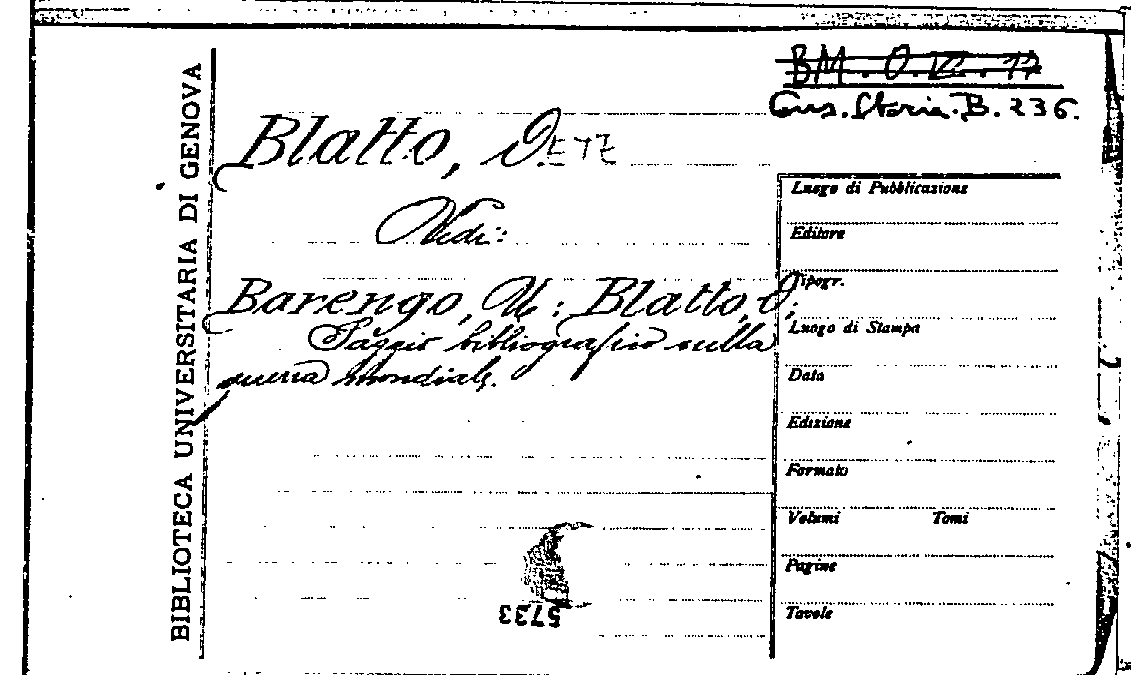 BM. O. VI. 17
Cons. Storia. B. 236.
BIBLIOTECA UNIVERSITARIA DI GENOVA
Blatto, OETE
Vedi:
Barengo, U: Blatto, O;
Saggio bibliografico sulla
guerra mondiale.
Luogo di Pubblicazione
Editore
Tipogr.
Luogo di Stampa
Data
Edizione
Formato
Volumi Tomi
Pagine
Tavole
5733